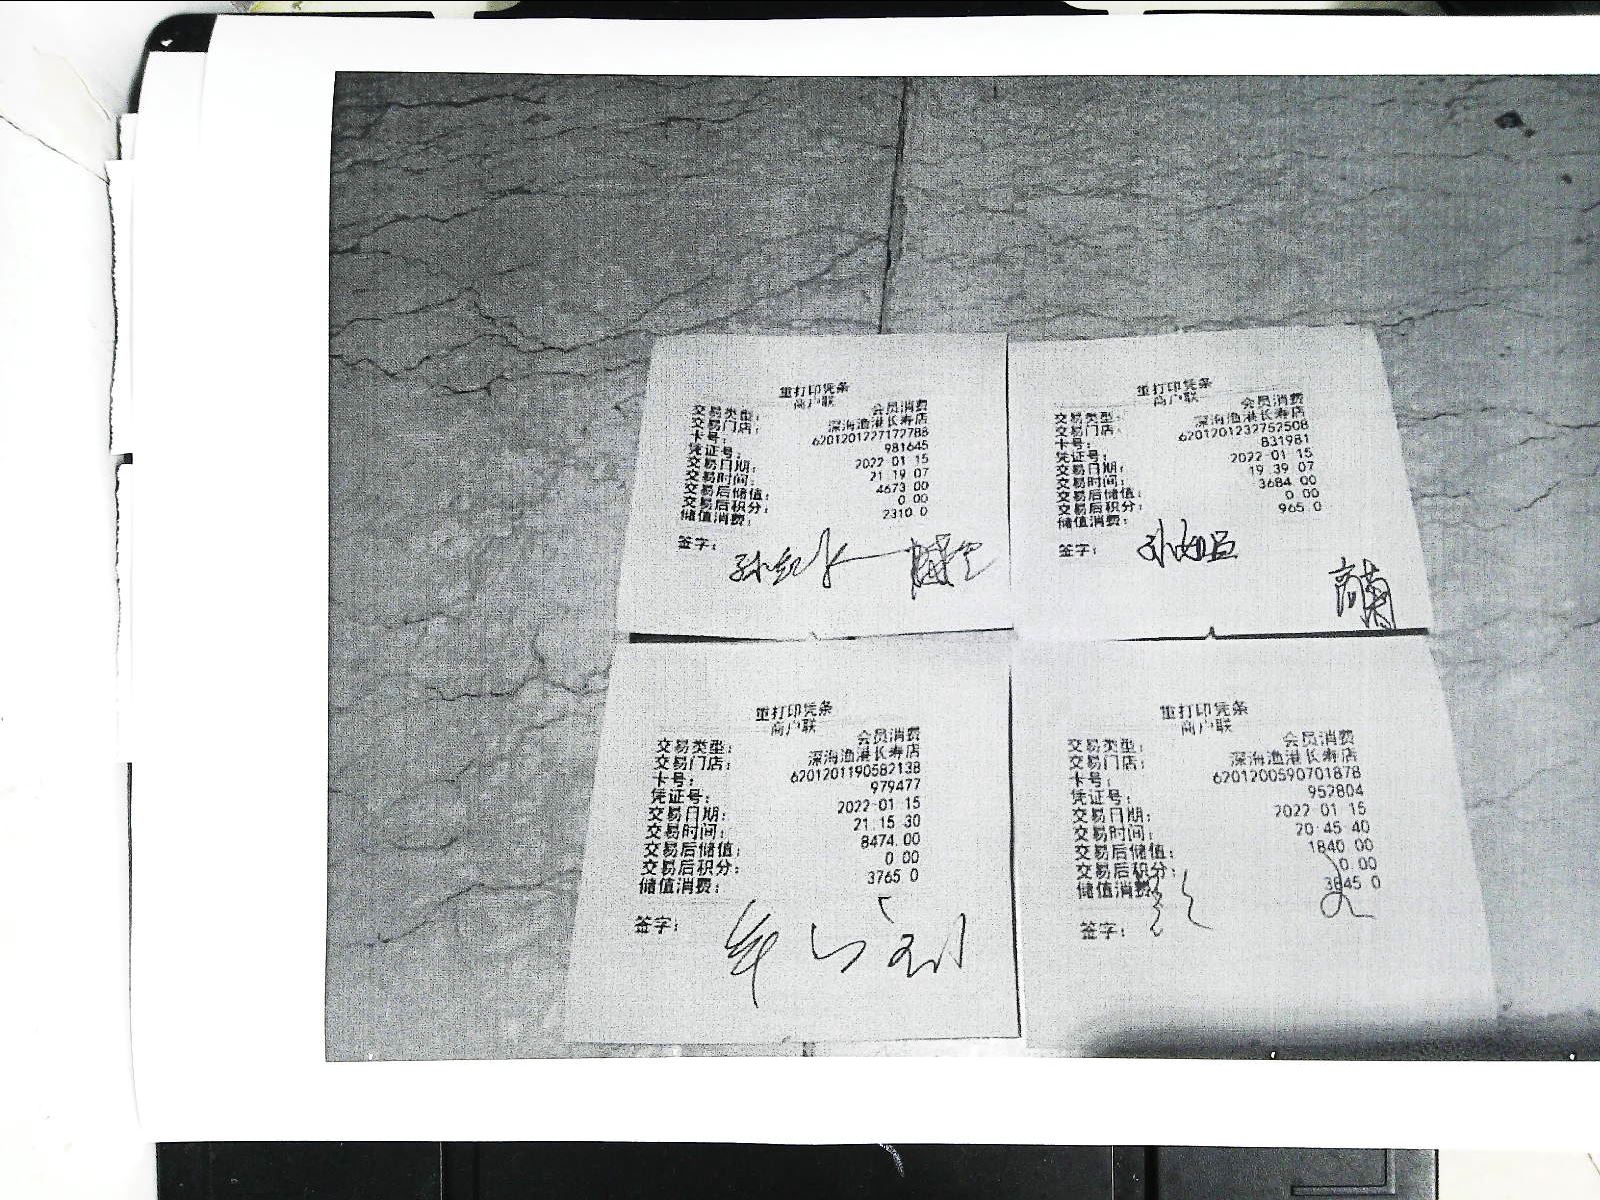 重打印凭条
商户联
交易类型： 会员消费
交易门店： 深海渔港长寿店
卡号： 6201201227172788
凭证号： 981645
交易日期： 2022 01 15
交易时间： 21 19 07
交易后储值： 4673 00
交易后积分： 0 00
储值消费： 2310 0
签字：
重打印凭条
商户联
交易类型： 会员消费
交易门店： 深海渔港长寿店
卡号： 6201201232752508
凭证号： 831981
交易日期： 2022 01 15
交易时间： 19 39 07
交易后储值： 3684 00
交易后积分： 0 00
储值消费： 965 0
签字：
重打印凭条
商户联
交易类型： 会员消费
交易门店： 深海渔港长寿店
卡号： 6201201190582138
凭证号： 979477
交易日期： 2022 01 15
交易时间： 21 15 30
交易后储值： 8474.00
交易后积分： 0 00
储值消费： 3765 0
签字：
重打印凭条
商户联
交易类型： 会员消费
交易门店： 深海渔港长寿店
卡号： 6201200590701878
凭证号： 952804
交易日期： 2022 01 15
交易时间： 20 45 40
交易后储值： 1840 00
交易后积分： 0 00
储值消费： 3845 0
签字：